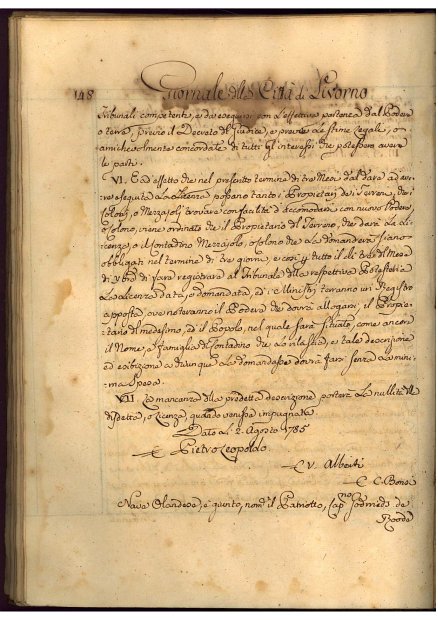 148 Giornale della Città di Livorno
Tribunali competenti, e da eseguirsi con l'effettiva partenza dal Podere
o terra, previo il Decreto del Giudice, e previe le stime legali, o
amichevolmente concordate di tutti gl'interessi che potessero avere
le parti.
VI. E ad effetto che nel presente termine di tre Mesi dal darsi ad es:
ser eseguita la licenza possano tanto i Proprietarj dei Terreni, che i
Coloni, o Mezzajoli trovare con facilità d'accomodarsi con nuovo Podere
o Colono, viene ordinato che il Proprietario del Terreno, che darà la li:
cenza, o il Contadino Mezzajolo, o Colono che la domanderà siano
obbligati nel termine di tre giorni, e così tutto il dì tre del Mese
di farla registrare al Tribunale della respettiva Potesteria
la licenza data, o domandata, ed i Ministri terranno un Registro
apposta, ove noteranno il Podere che dovrà allogarsi, il Proprie:
tario del medesimo, ed il Popolo, nel quale sarà situato, come ancora
il Nome, e famiglia del Contadino che la rilascia, e tale descrizione
ed esibizione a chiunque la domandasse dovrà farsi senza la mini:
ma spesa.
VII. La mancanza della predetta descrizione porterà la nullità della
disdetta, o licenza, quando venisse impugnata.
Dato li 2. Agosto 1785
Pietro Leopoldo
V. Alberti
C. Bonsi
Nave Olandese, è giunto, nom.º il Patriotto, Cap.no de
Roode